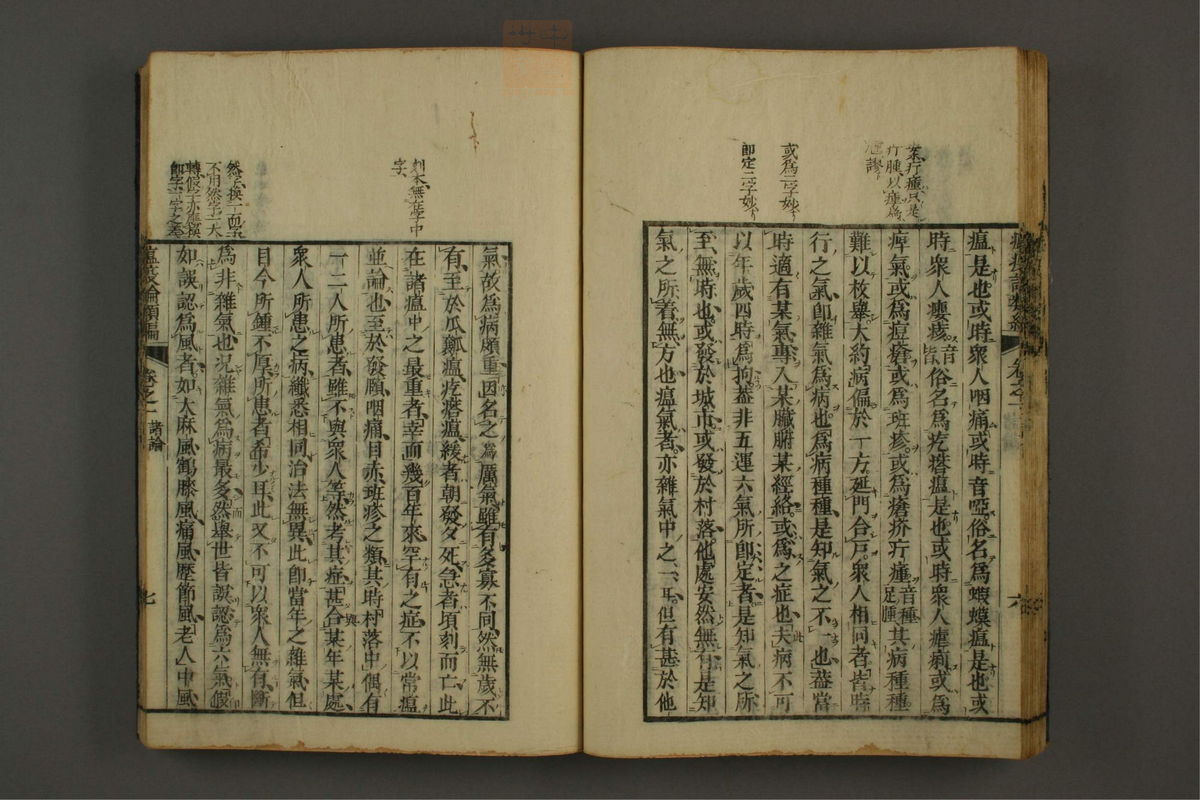 案疔瘇只是
疔腫以瘇爲
或爲二字妙
卽定二字妙
瘟是也或時衆人咽痛或時音啞俗名爲蝦蟆瘟是也或
時衆人瘿痎音皆俗名爲疙瘩瘟是也或時衆人瘧痢或爲
痺氣或爲痘瘡或爲斑疹或爲瘡疥疔瘇音種足腫其病種種
難以枚舉大約病偏於一方延門合戸衆人相同者皆時
行之氣卽雜氣爲病也爲病種種是知氣之不一也葢當
時適有某氣專入某臟腑某經絡或爲之症也夫病不可
以年歲四時爲拘葢非五運六氣所卽定者是知氣之所
至無時也或發於城市或發於村落他處安然無有是知
氣之所着無方也瘟氣者亦雜氣中之一耳但有甚於他
卷之一
六
刻本無在字中
字
然字換一而字
不用然字一大
轉假字亦應換
卽字二字之差
氣故爲病頗重因名之爲厲氣雖有多寡不同然無歲不
有至於瓜瓤瘟疙瘩瘟緩者朝發夕死急者頃刻而亡此
在諸瘟中之最重者幸而幾百年來罕有之症不以常瘟
並論也至於發頤咽痛目赤斑疹之類其時村落中偶有
一二人所患者雖不與衆人等然考其症甚合某年某處
衆人所患之病纖悉相同治法無異此卽當年之雜氣但
目今所鍾不厚所患者希少耳此又不可以衆人無有斷
爲非雜氣也況雜氣爲病最多然舉世皆誤認爲六氣假
如誤認爲風者如大麻風鶴膝風痛風歴節風老人中風
瘟疫論類編
卷之一
諸論
七